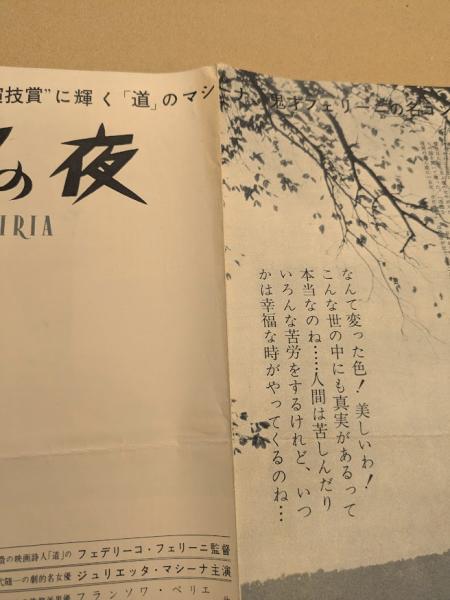 演技賞”に輝く「道」のマシーナ、鬼才フェリーニの名コン
の夜
IRIA
なんて変った色！美しいわ！
こんな世の中にも真実があるって
本当なのね……人間は苦しんだり
いろんな苦労をするけれど、いつ
かは幸福な時がやってくるのね…
の映画詩人「道」の フェデリーコ・フェリーニ監督
代随一の劇的名女優 ジュリエッタ・マシーナ主演
フランソワ・ペリエ